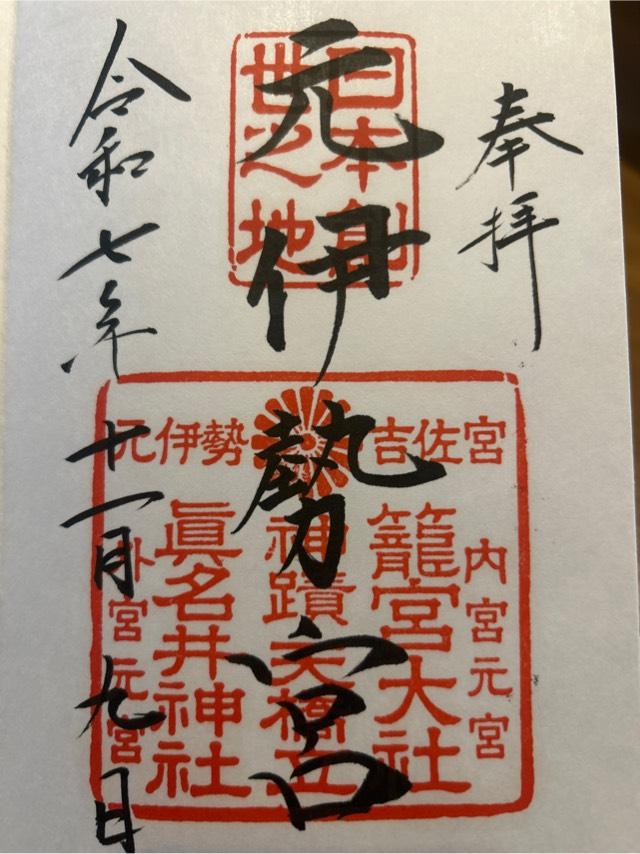 奉拝
元伊勢宮
令和七年十一月九日
日本創
世之地
元伊勢 吉佐宮
内宮元宮
籠宮大社
神蹟 天橋立
眞名井神社
外宮元宮